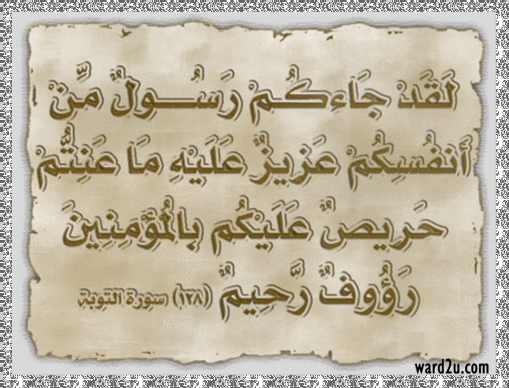 لَقَدْ جَاءكُمْ رَسُـــولٌ مِّنْ
أَنفُسِكُمْ عَزِيزٌ عَلَيْهِ مَا عَنِتُّمْ
حَرِيصٌ عَلَيْكُم بِالْمُؤْمِنِينَ
رَؤُوفٌ رَّحِيمٌ (١٢٨) سورة التوبة
ward2u.com